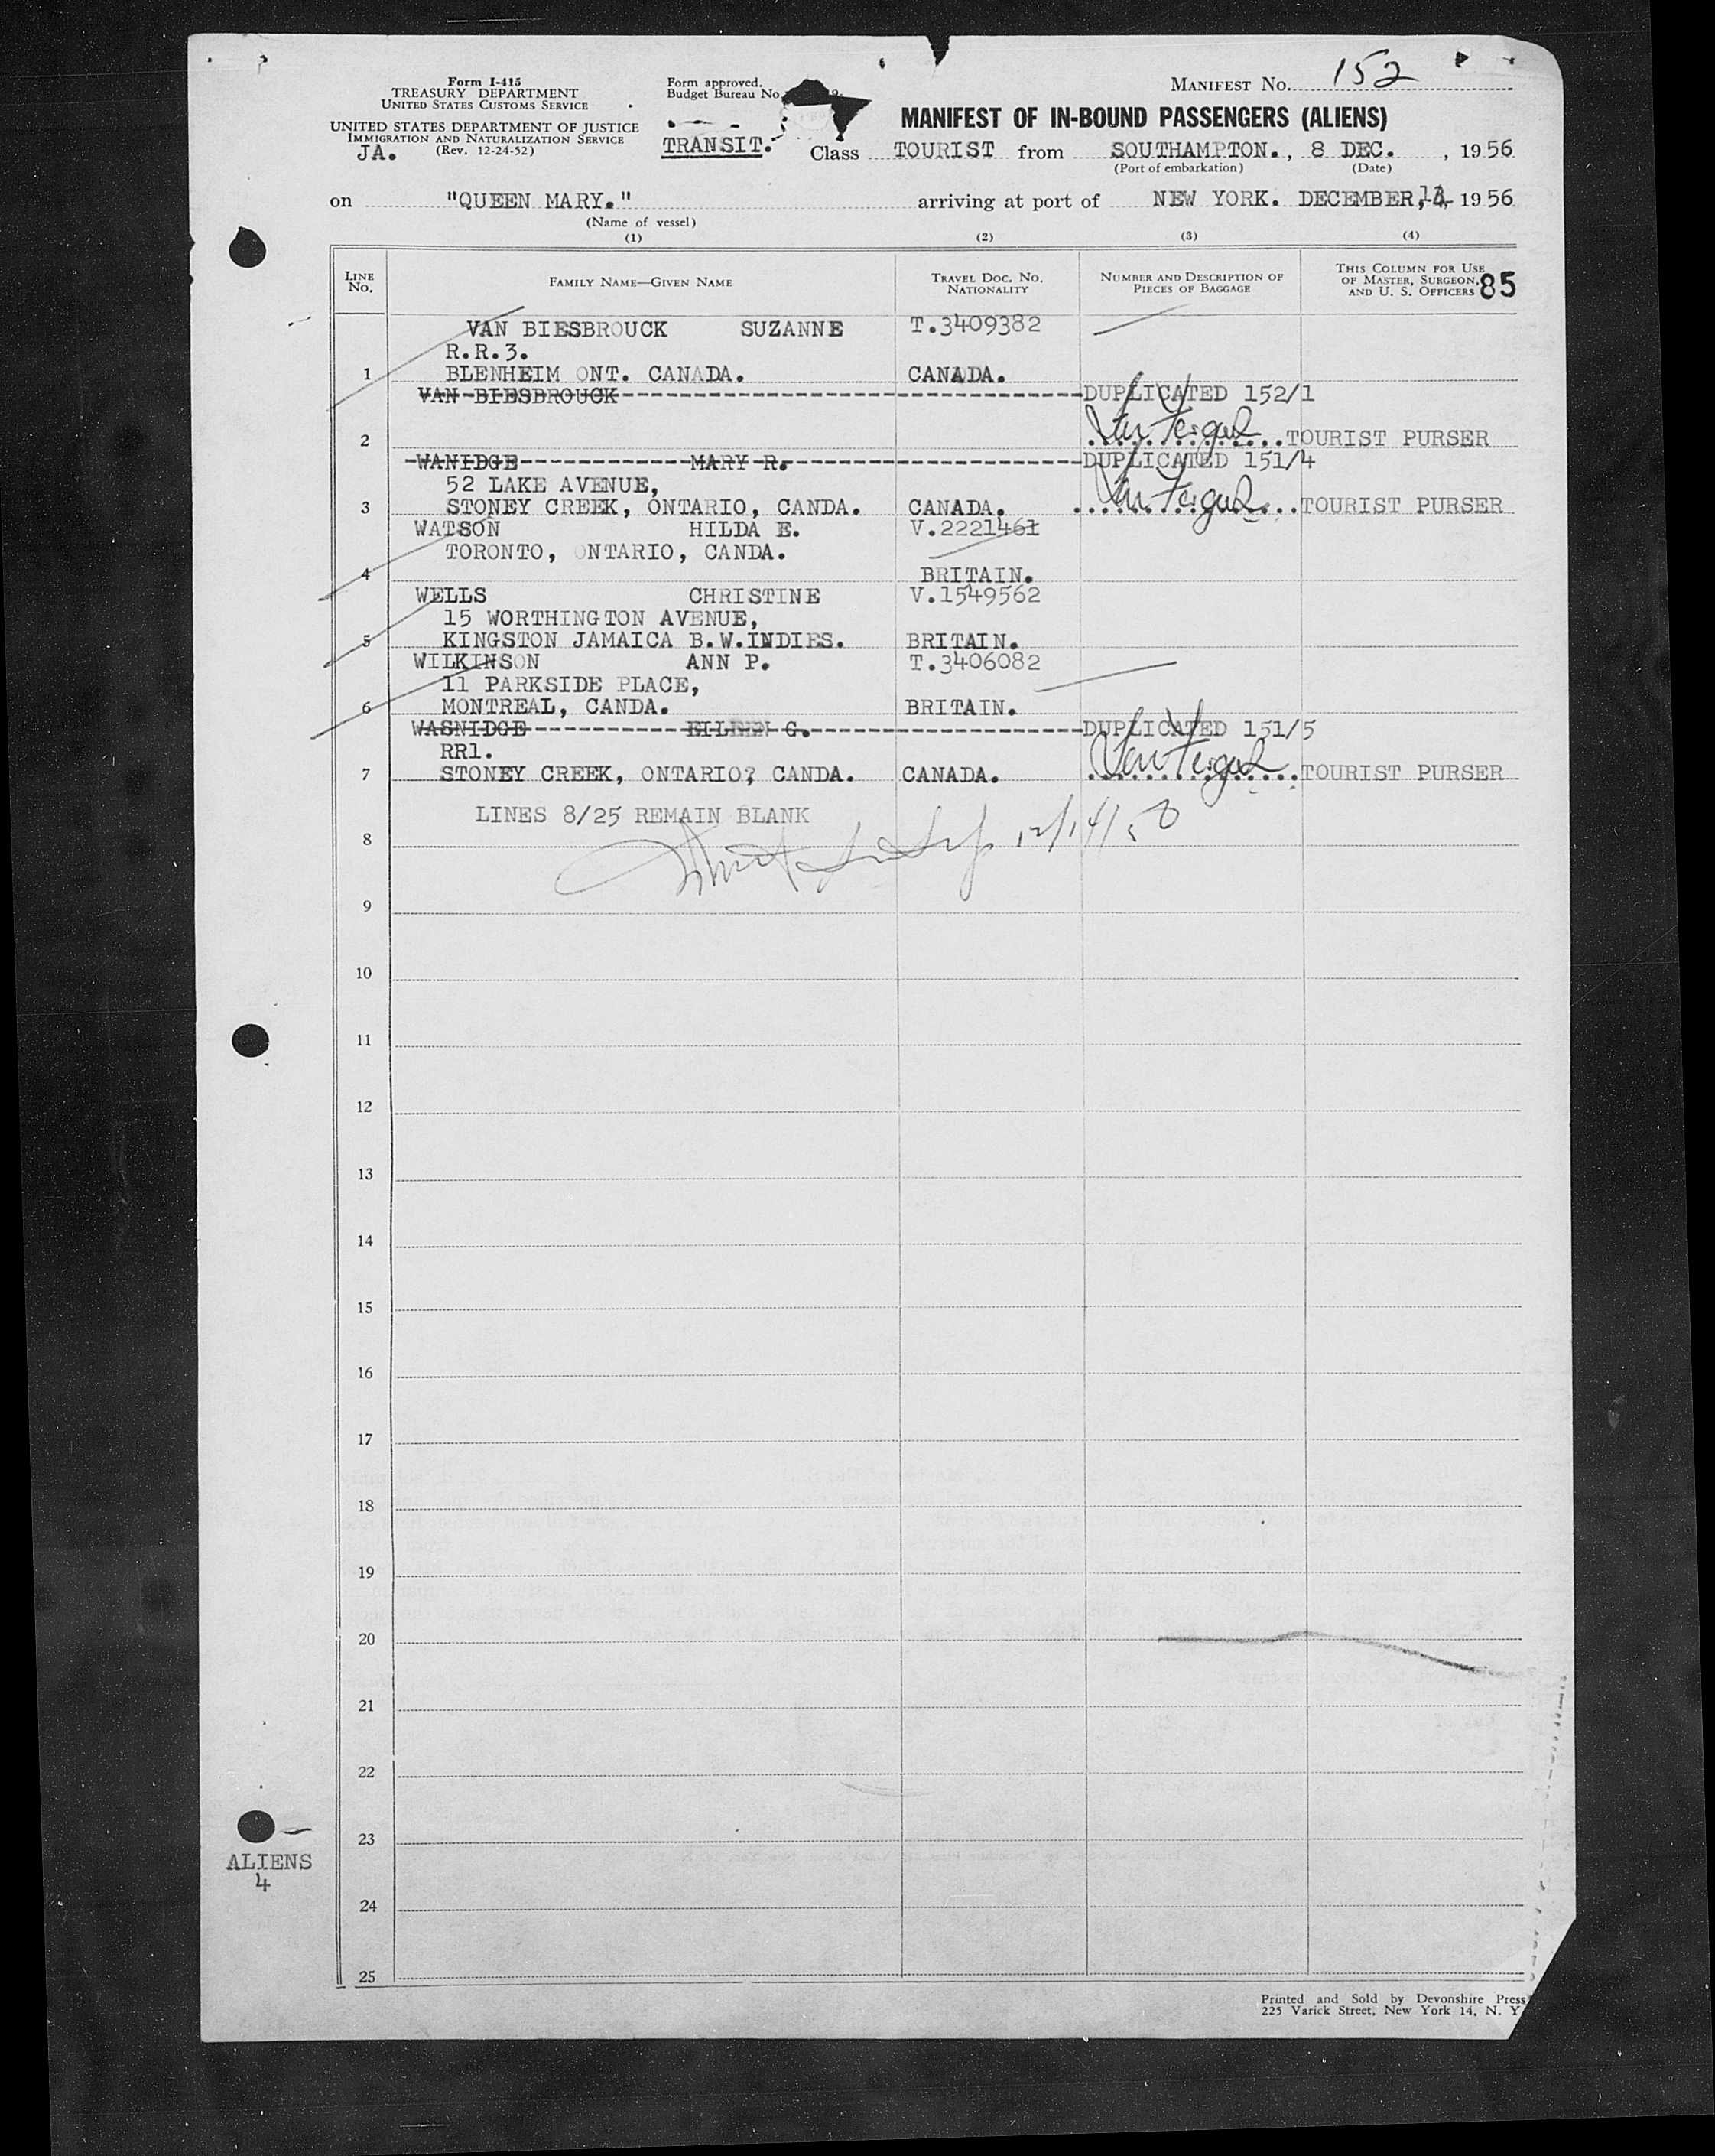 Form I-415
TREASURY DEPARTMENT
UNITED STATES CUSTOMS SERVICE
UNITED STATES DEPARTMENT OF JUSTICE
IMMIGRATION AND NATURALIZATION SERVICE
(Rev. 12-24-52)
JA.
Form approved.
Budget Bureau No.
TRANSIT.
MANIFEST NO. 152
MANIFEST OF IN-BOUND PASSENGERS (ALIENS)
Class TOURIST from SOUTHAMPTON., 8 DEC. , 1956
(Port of embarkation) (Date)
on "QUEEN MARY." arriving at port of NEW YORK. DECEMBER, 1956
(Name of vessel)
(1) (2) (3) (4)
LINE NO. FAMILY NAME—GIVEN NAME TRAVEL DOC. NO. NATIONALITY NUMBER AND DESCRIPTION OF PIECES OF BAGGAGE THIS COLUMN FOR USE OF MASTER, SURGEON, AND U. S. OFFICERS 85
VAN BIESBROUCK SUZANNE T.3409382
R.R.3.
1 BLENHEIM ONT. CANADA. CANADA.
VAN BIESBROUCK DUPLICATED 152/1
2 TOURIST PURSER
WANIDGE MARY R. DUPLICATED 151/4
52 LAKE AVENUE,
3 STONEY CREEK, ONTARIO, CANDA. CANADA. TOURIST PURSER
WATSON HILDA E. V.2221461
TORONTO, ONTARIO, CANDA.
4 BRITAIN.
WELLS CHRISTINE V.1549562
15 WORTHINGTON AVENUE,
5 KINGSTON JAMAICA B.W.INDIES. BRITAIN.
WILKINSON ANN P. T.3406082
11 PARKSIDE PLACE,
6 MONTREAL, CANDA. BRITAIN.
WASNIDGE EILEEN G. DUPLICATED 151/5
RR1.
7 STONEY CREEK, ONTARIO? CANDA. CANADA. TOURIST PURSER
LINES 8/25 REMAIN BLANK
8
9
10
11
12
13
14
15
16
17
18
19
20
21
22
23
24
25
ALIENS
4
Printed and Sold by Devonshire Press
225 Varick Street, New York 14, N. Y